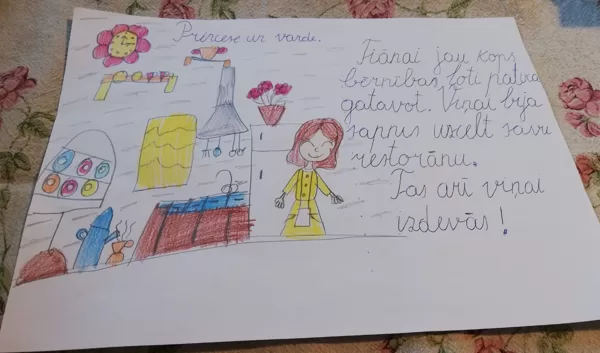 Princese un varde.
Tiānai jau kopš
bērnības ļoti patika
gatavot. Viņai bija
sapnis uzcelt savu
restorānu.
Tas arī viņai
izdevās!